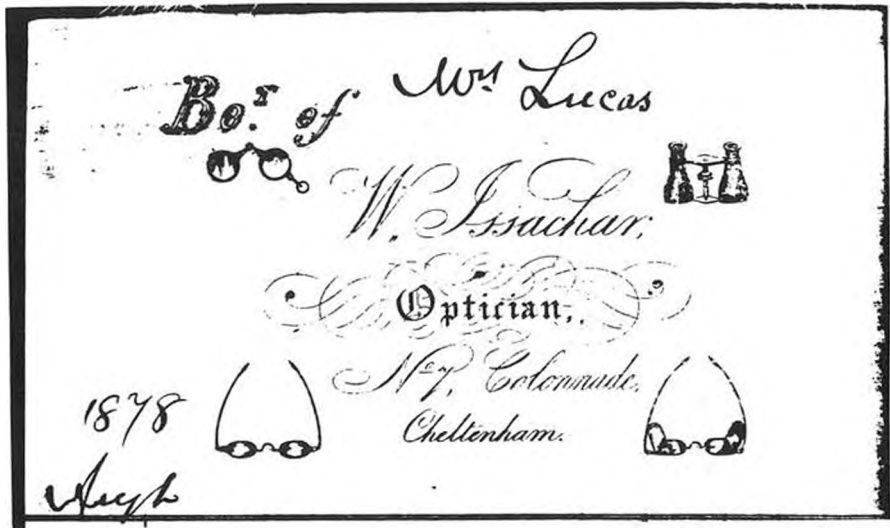 Bo.t of Mrs Lucas
W. Issachar,
Optician,
No 7, Colonnade,
Cheltenham.
1878